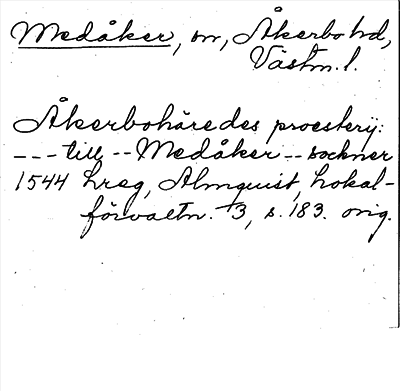 Medåker, sn, Åkerbo hd,
Västm. l.
Åkerbohäredes proesterij:
--- till -- Medåker -- sockner
1544 Lreg, Almquist, Lokal-
förvaltn. 3, s. 183. orig.